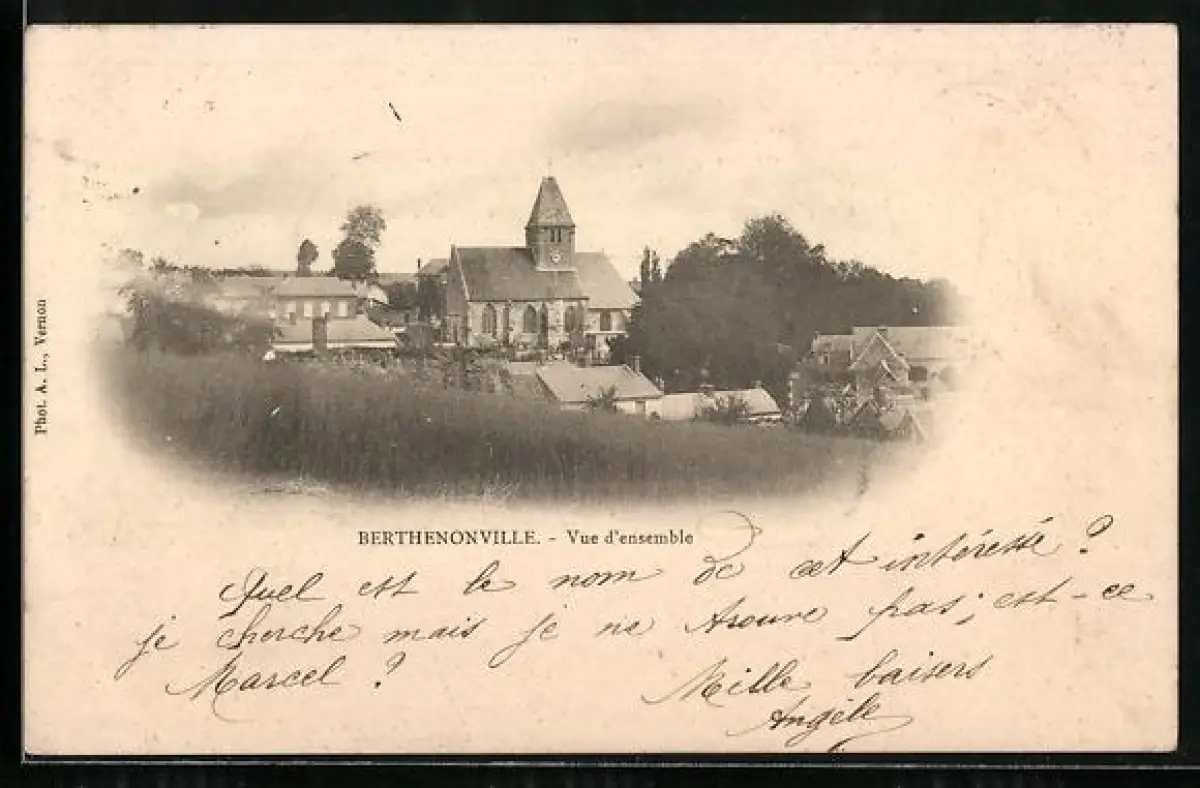 Phot. A. L., Vernon
BERTHENONVILLE. - Vue d'ensemble
Quel est le nom de cet intéressé ?
je cherche mais je ne trouve pas; est-ce
Marcel ?
Mille baisers
Angèle